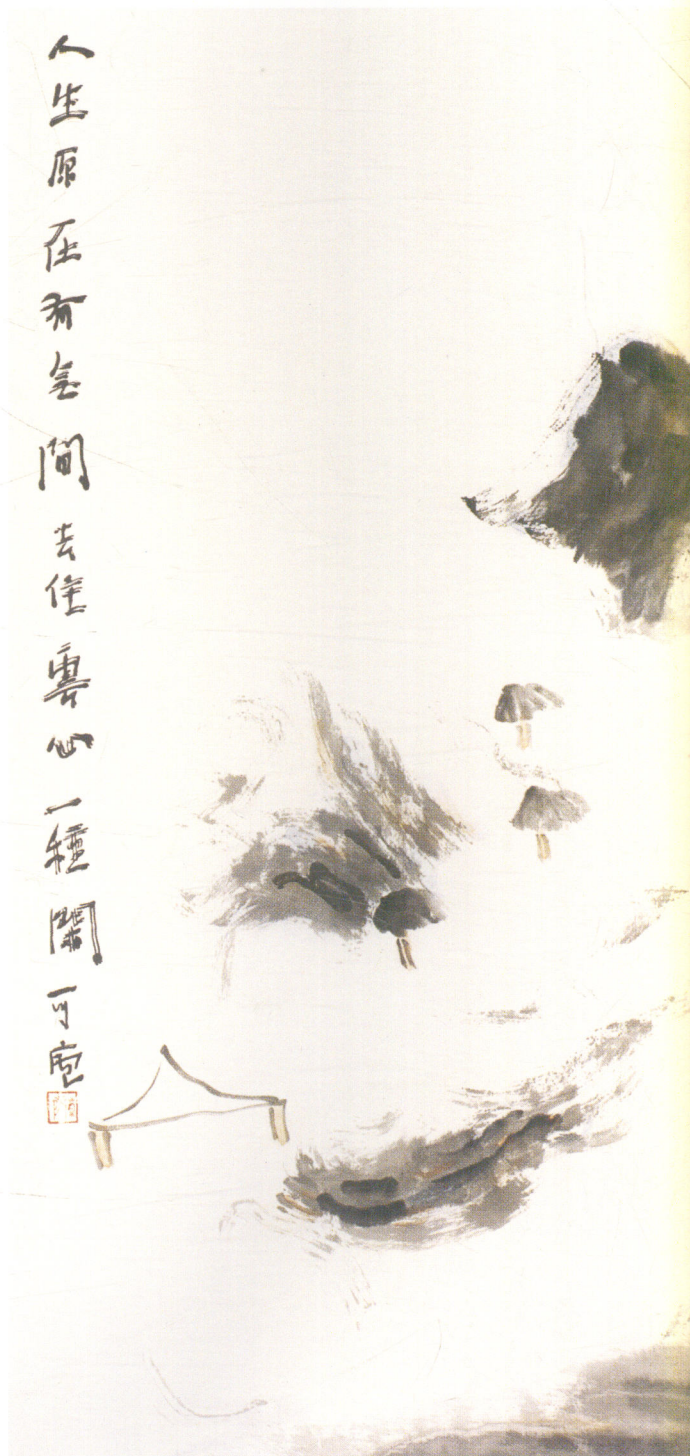 人生原在有無間去住雲心一種閒可庵